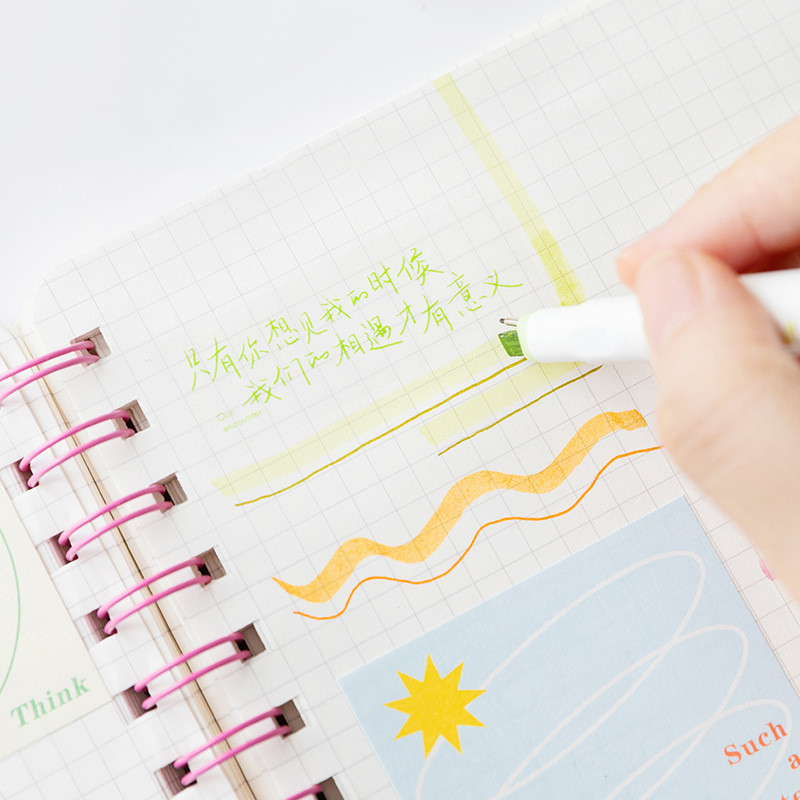 只有你想见我的时候
我们的相遇才有意义
Our
encounter
Think
Such
a